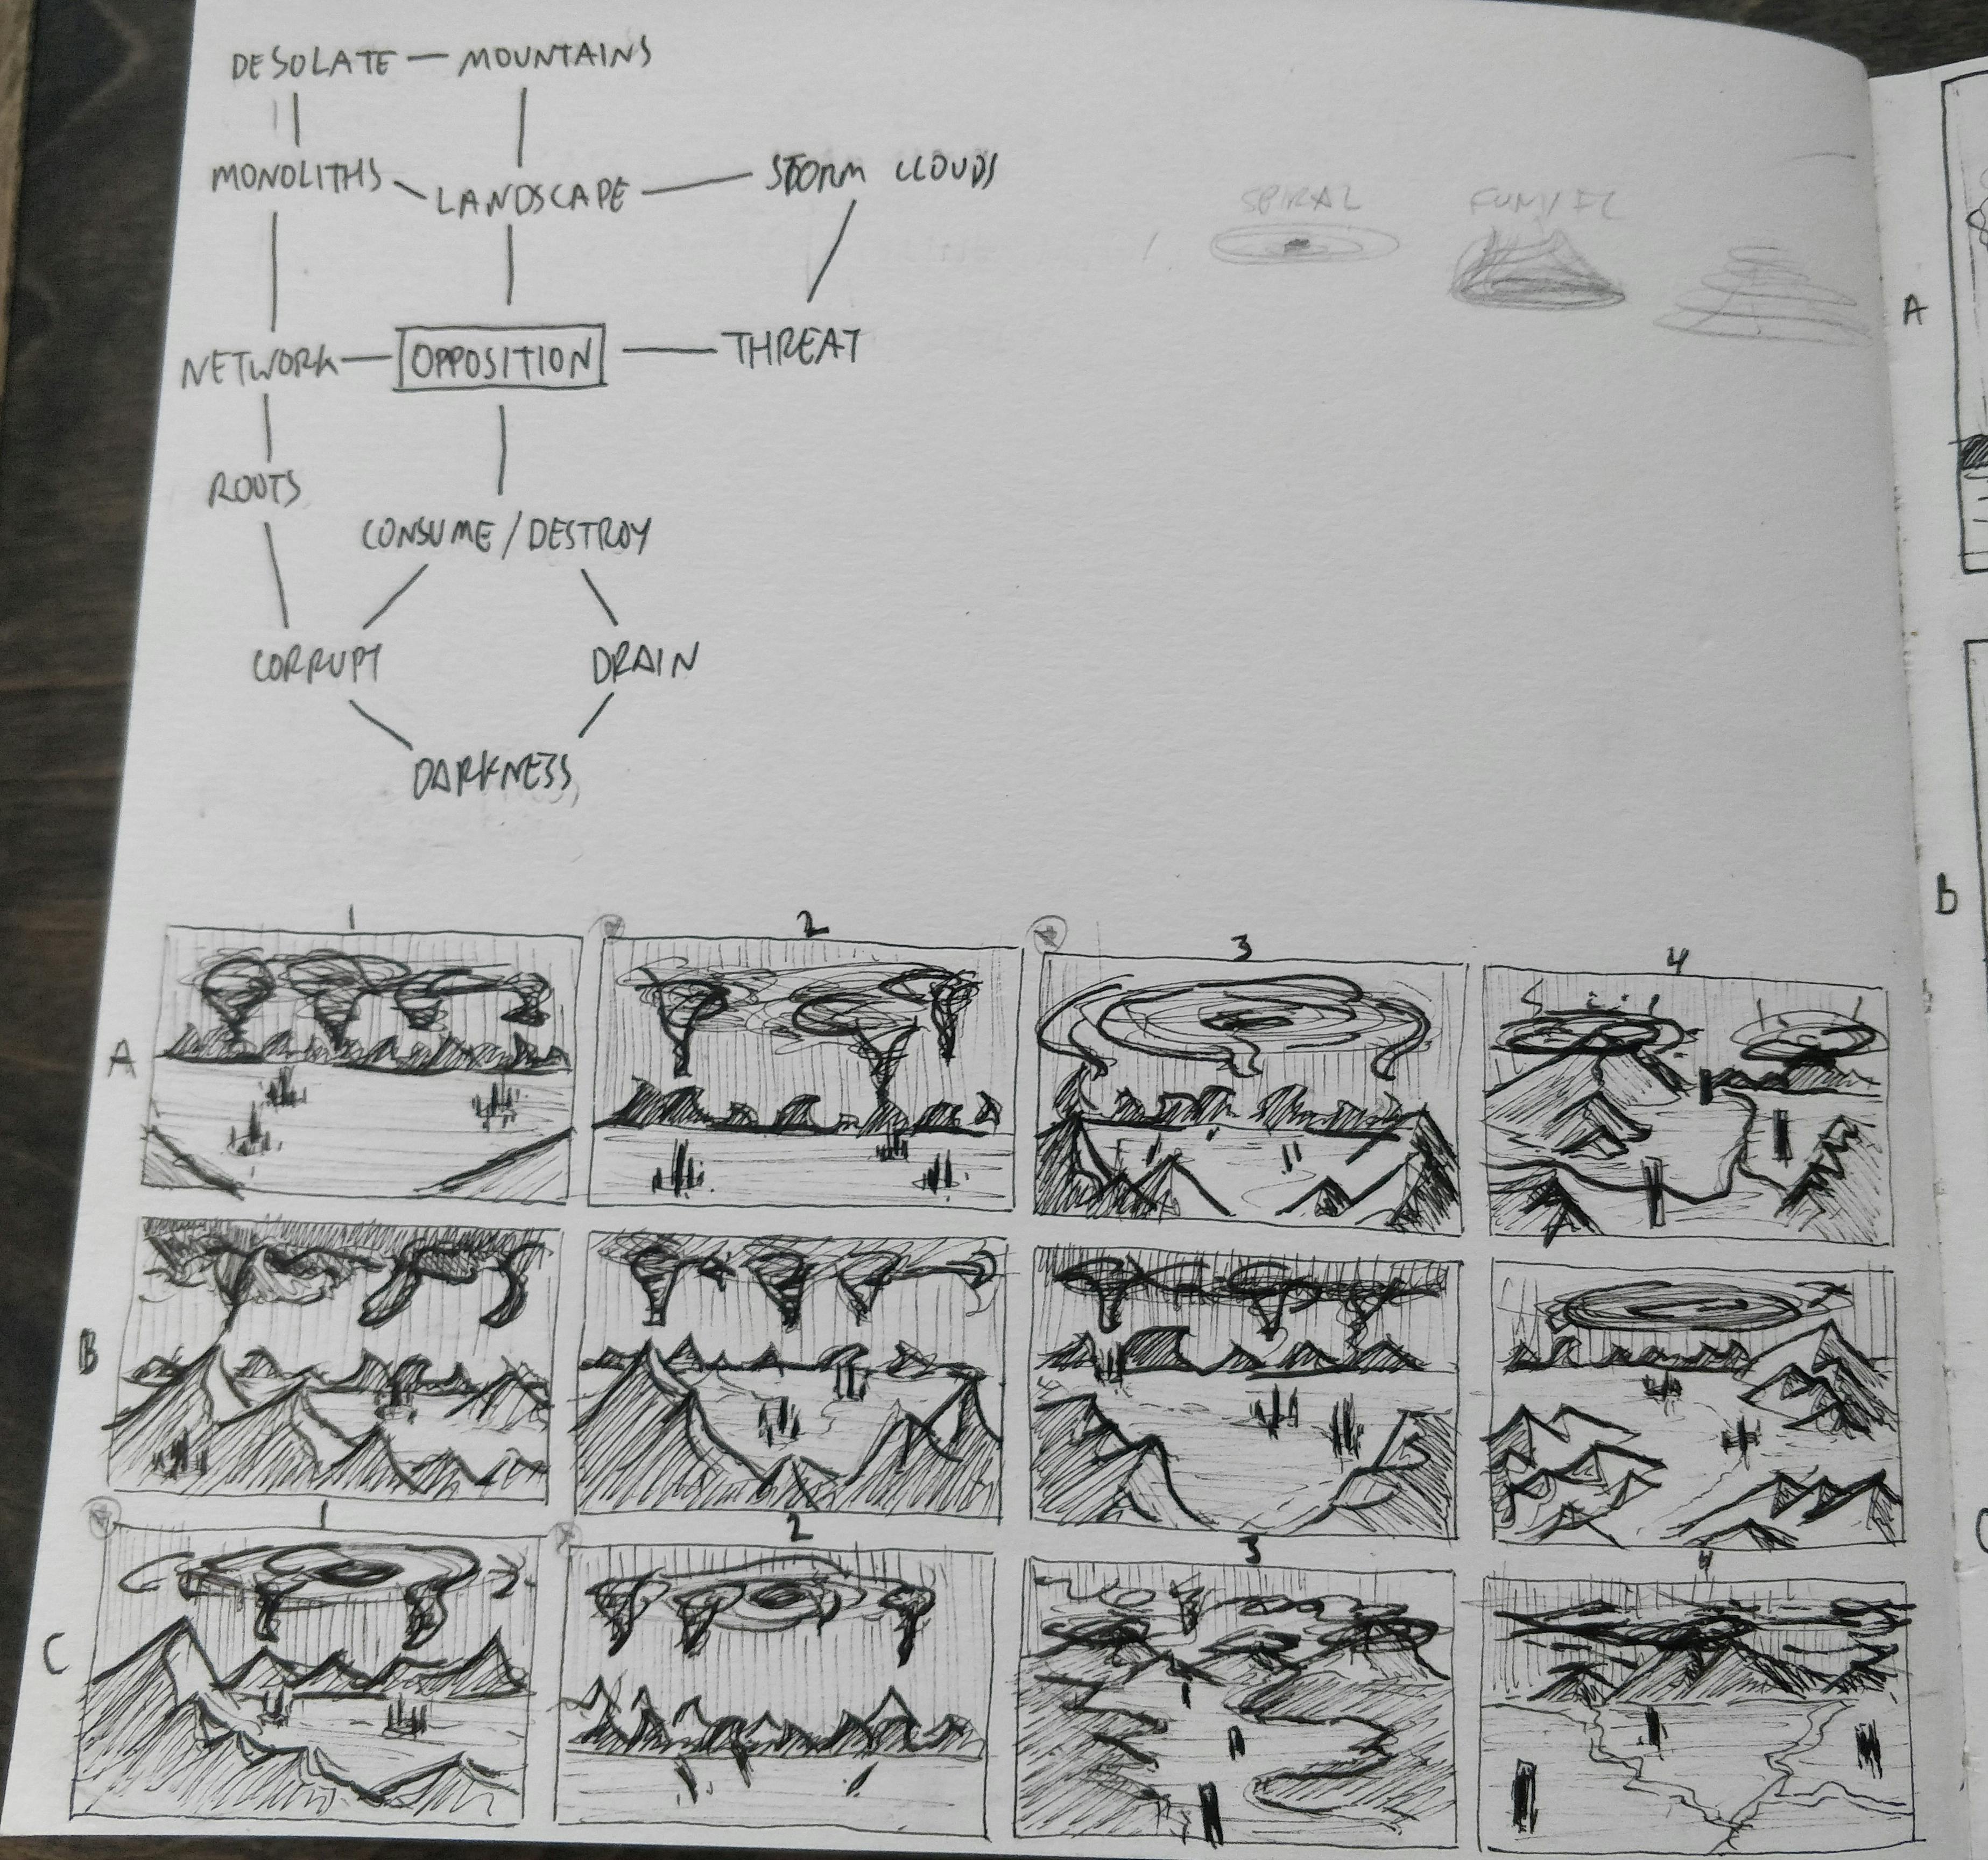 DESOLATE — MOUNTAINS
MONOLITHS
LANDSCAPE
STORM CLOUDS
SPIRAL
FUNNEL
NETWORK
OPPOSITION
THREAT
ROOTS
CONSUME / DESTROY
CORRUPT
DRAIN
DARKNESS
A
B
1
2
3
4
A
B
1
2
3
4
C